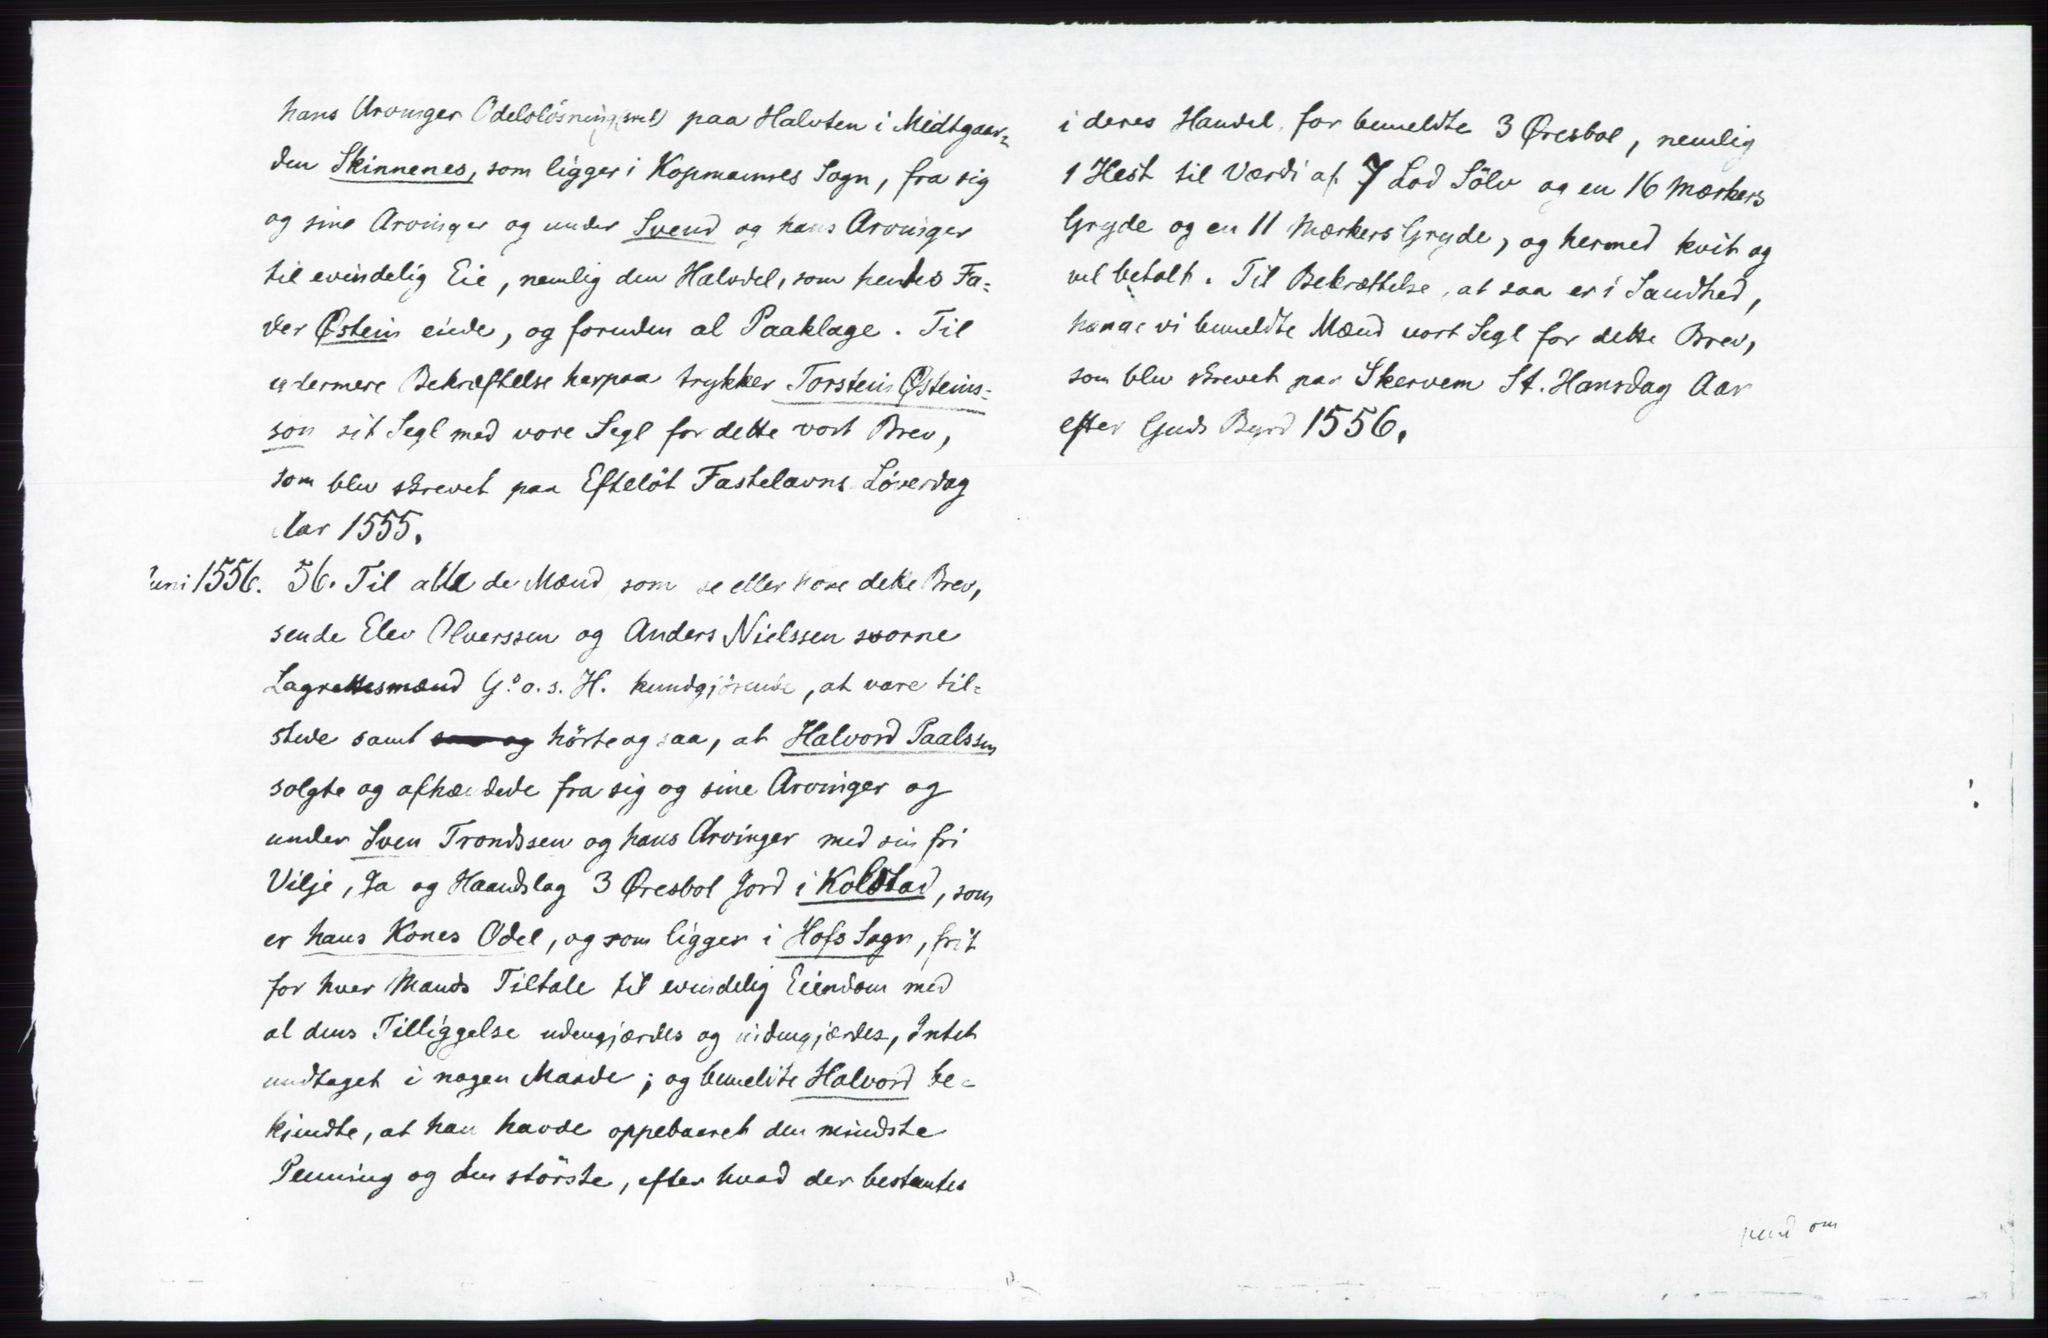 hans Arvinger Odelsløsning(sret) paa Halvten i Midtgaar=
den Skinnenes, som ligger i Kopmannes Sogn, fra sig
og sine Arvinger og under Svend og hans Arvinger
til evindelig Eie, nemlig den Halvdel, som hendes Fa=
der Østein eiede, og foruden al Paaklage. Til
ydermere Bekræftelse herpaa trykker Torstein Østeins=
son sit Segl med vore Segl for dette vort Brev,
som blev skrevet paa Efteløt Fastelavns Løverdag
Aar 1555.
Juni 1556. 56. Til alle de Mænd som se eller høre dette Brev,
sende Elev Olverssen og Anders Nielssen svorne
Lagrettesmænd G. o. s. H. kundgjørende, at være til=
stede samt hørte og saa, at Halvord Paalssen
solgte og afhændede fra sig og sine Arvinger og
under Sven Trondssen og hans Arvinger med sin fri
Vilje, Ja og Haandslag 3 Øresbol Jord i Kolstad, som
er hans Kones Odel, og som ligger i Hofs Sogn, frit
for hver Mands Tiltale til evindelig Eiendom med
al dens Tilliggelse udengjærdes og indengjærdes, Intet
undtaget i nogen Maade; og bemeldte Halvord be=
kjendte, at han havde oppebaaret den mindste
Penning og den største, efter hvad der bestemtes
i deres Handel, for bemeldte 3 Øresbol, nemlig
1 Hest til Værdi af 7 Lod Sölv og en 16 Mærkers
Gryde og en 11 Mærkers Gryde, og hermed kvit og
vel betalt. Til Bekræftelse, at saa er i Sandhed,
hænge vi bemeldte Mænd vort Segl for dette Brev,
som blev skrevet paa Skervem St. Hansdag Aar
efter Guds Byrd 1556.
om